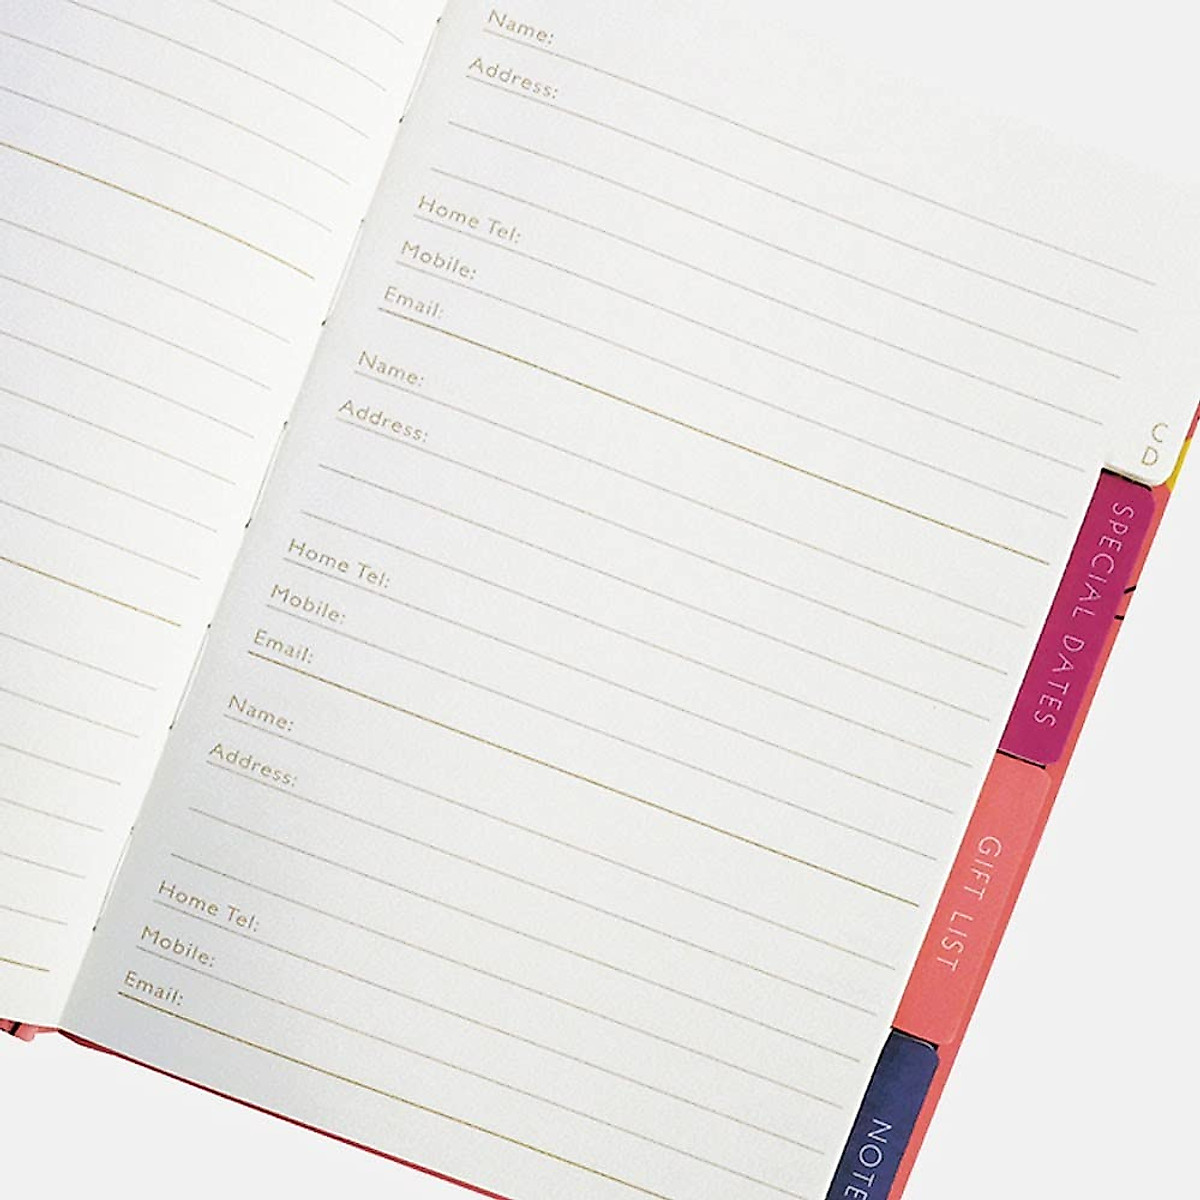 Name:
Address:
Home Tel:
Mobile:
Email:
Name:
Address:
Home Tel:
Mobile:
Email:
Name:
Address:
Home Tel:
Mobile:
Email:
C
D
SPECIAL DATES
GIFT LIST
NOTE